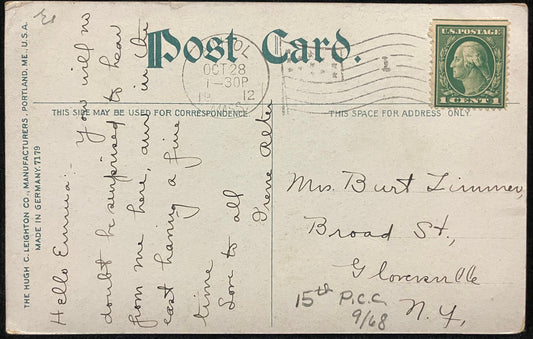 THE HUGH C. LEIGHTON CO., MANUFACTURERS, PORTLAND, ME., U.S.A.
MADE IN GERMANY. 7179
Post Card.
OCT 28
1-30P
12
MASS.
U.S. POSTAGE
1 CENT 1
THIS SIDE MAY BE USED FOR CORRESPONDENCE
THIS SPACE FOR ADDRESS ONLY
Hello Emma:- You will no
doubt be surprised to hear
from me here, am in the
east having a fine
time
Love to all
Irene Alter
Mrs. Burt Timmer,
Broad St,
Gloversville
N.Y.
15th P.C.C.
9/68